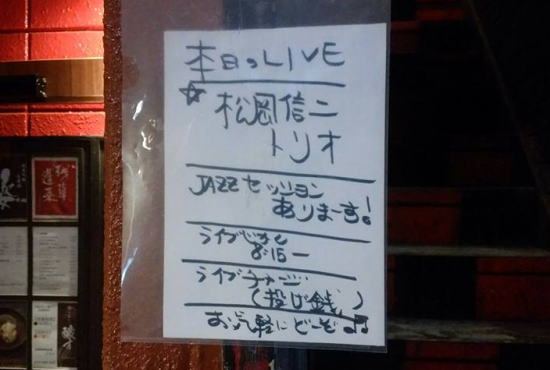 本日のLIVE
☆松岡信二
トリオ
JAZZセッション
ありまーす!
8:15ー
ライブチャージ
(投げ銭)
お気軽にどーぞ♫